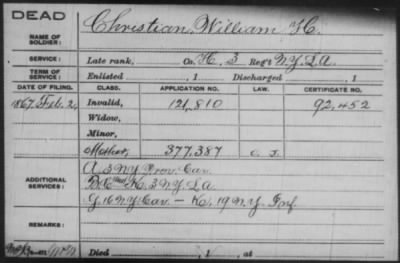 DEAD
NAME OF SOLDIER: Christian, William H.
SERVICE: Late rank, Co. H, 3 Reg't N.Y. L.A.
TERM OF SERVICE: Enlisted , 1 Discharged , 1
DATE OF FILING. CLASS. APPLICATION NO. LAW. CERTIFICATE NO.
1867, Feb. 2, Invalid, 121,810 92,452
Widow,
Minor,
Mother, 377,387
ADDITIONAL SERVICES: A 3 NY Prov. Cav.
K, 3 N.Y. L.A.
G, 16 N.Y. Cav. — K, 19 N.Y. Inf.
REMARKS:
Died , at